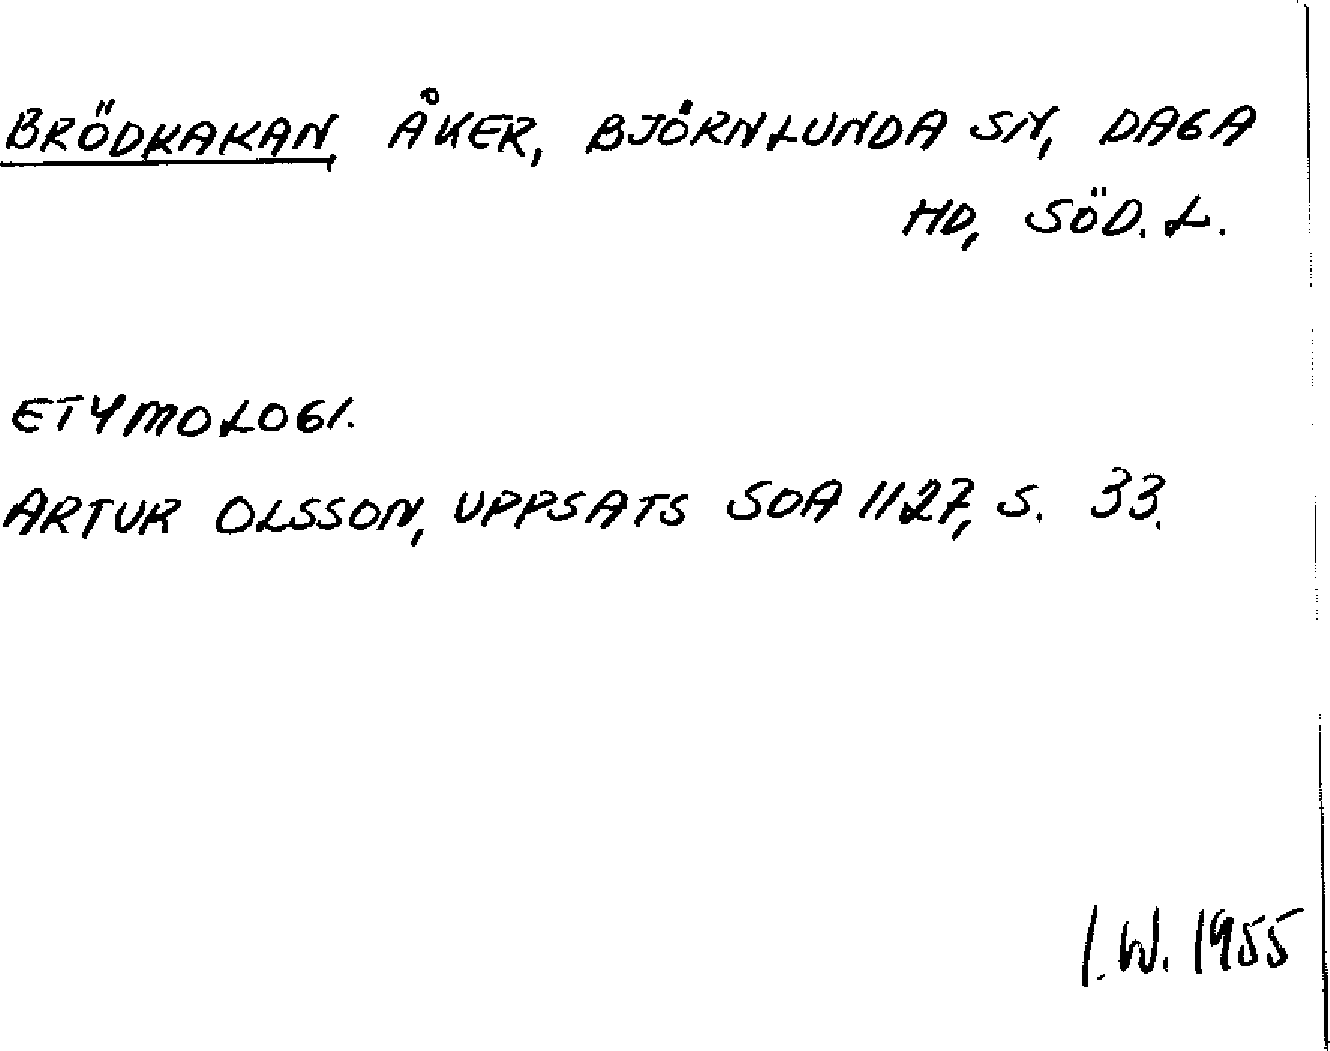 BRÖDKAKAN, ÅKER, BJÖRNLUNDA SN, DAGA
HD, SÖD. L.
ETYMOLOGI.
ARTUR OLSSON, UPPSATS SOA 1127, S. 33.
I. W. 1955